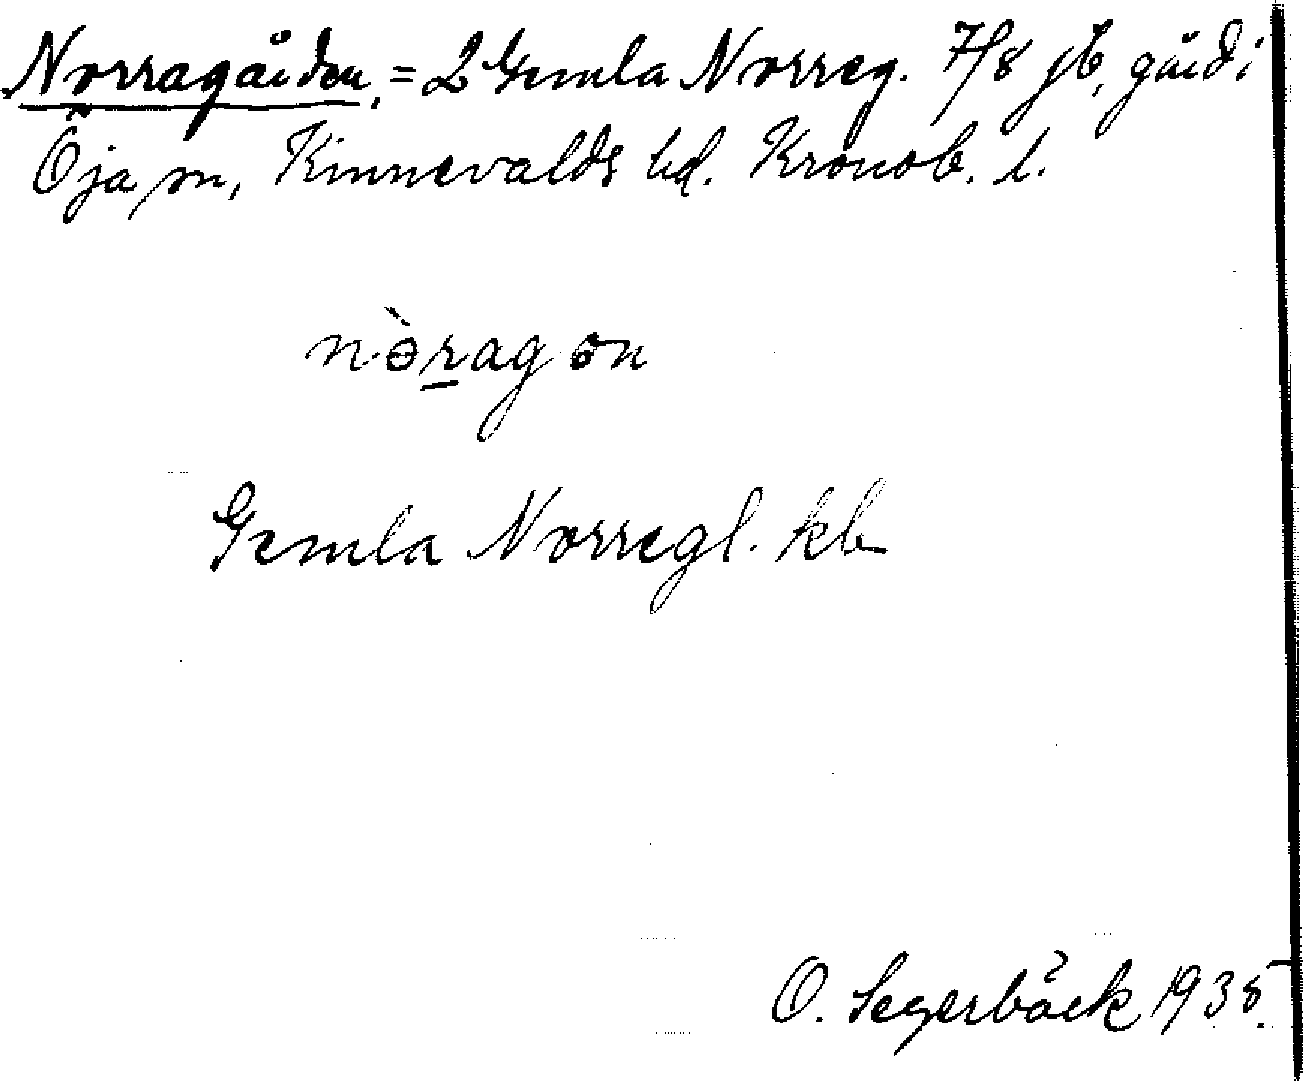 Norragården, = 2 Gemla Norreg. 7/8 jb. gård i
Öja sn, Kinnevalds hd. Kronob. l.
n·ə̀ragɵn
Gemla Norregl. kb
O. Segerbäck 1935.